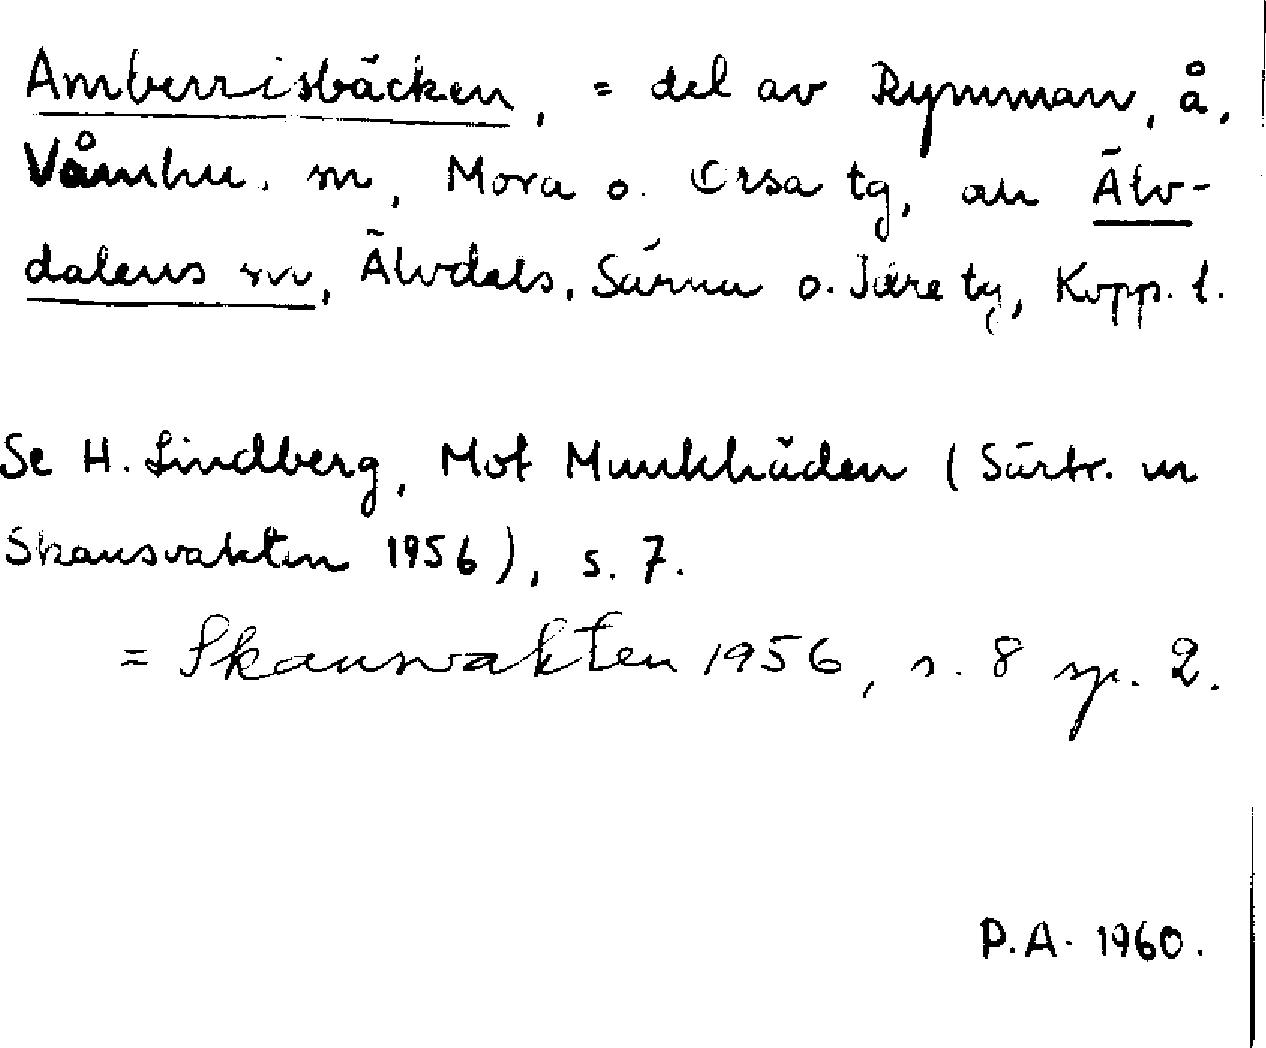 Amberrisbäcken, = del av Rymman, å,
Våmhus sn, Mora o. Orsa tg, au Älv-
dalens sn, Älvdals, Särna o. Idre tg, Kopp. l.
Se H. Lindberg, Mot Munkhäden (Särtr. ur
Skansvakten 1956), s. 7.
= Skansvakten 1956, s. 8 sp. 2.
P.A. 1960.